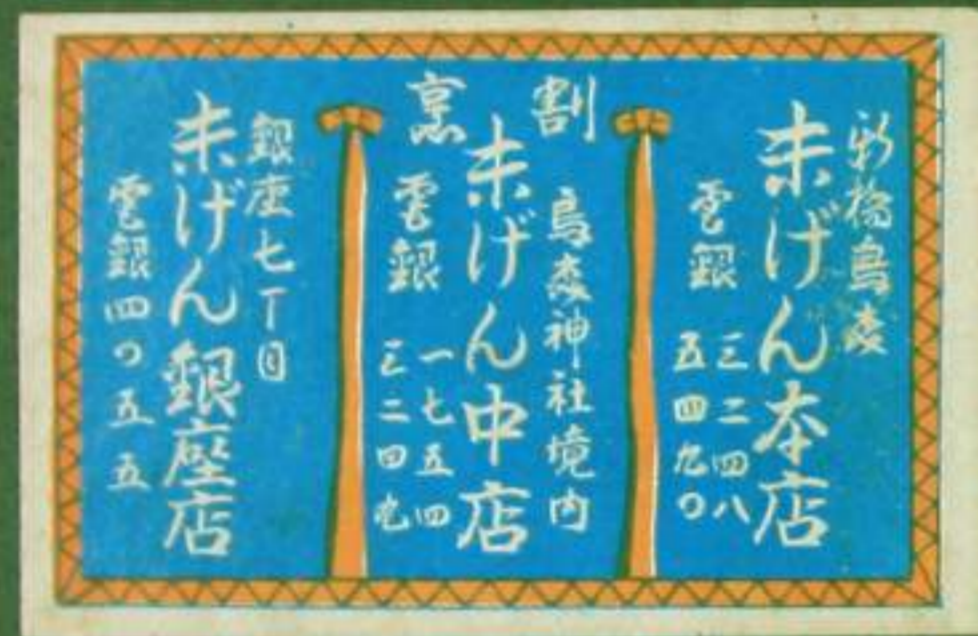 割烹
新橋烏森
末げん本店
電銀
三二四八
五四九〇
烏森神社境内
末げん中店
電銀
一七五四
三二四九
銀座七丁目
末げん銀座店
電銀四〇五五